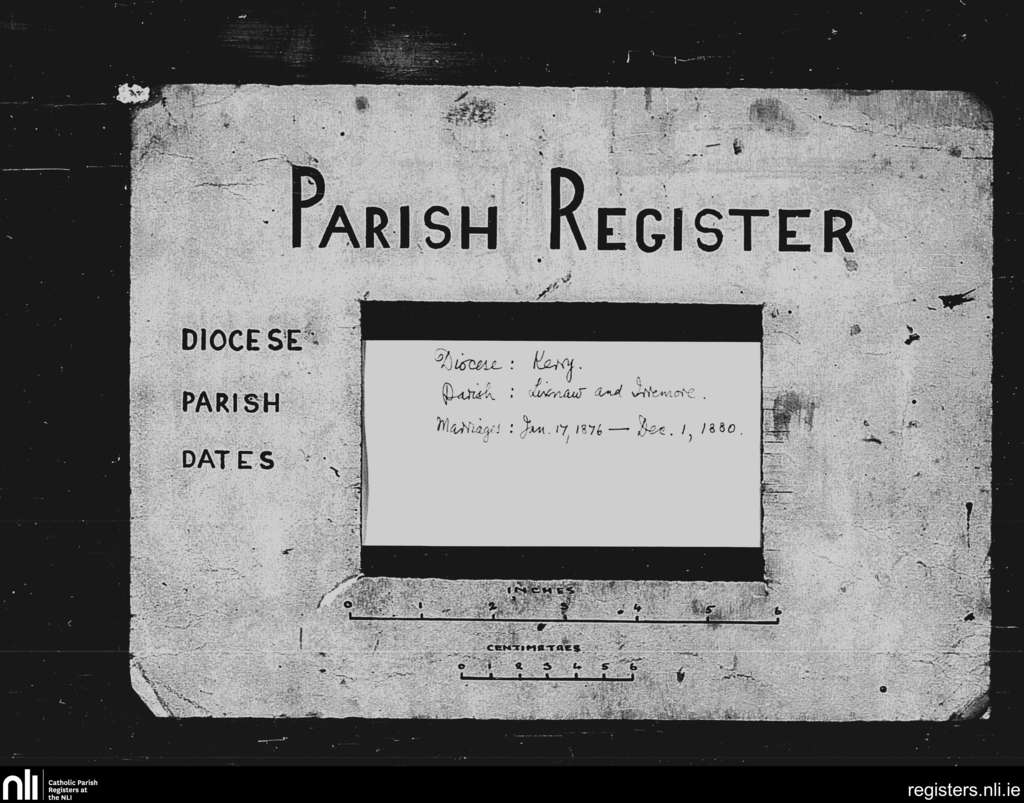 PARISH REGISTER
DIOCESE
PARISH
DATES
Diocese : Kerry.
Parish : Lixnaw and Irremore.
Marriages : Jan. 17, 1876 — Dec. 1, 1880.
INCHES
0 1 2 3 4 5 6
CENTIMETRES
0 1 2 3 4 5 6
nli
Catholic Parish
Registers at
the NLI
registers.nli.ie